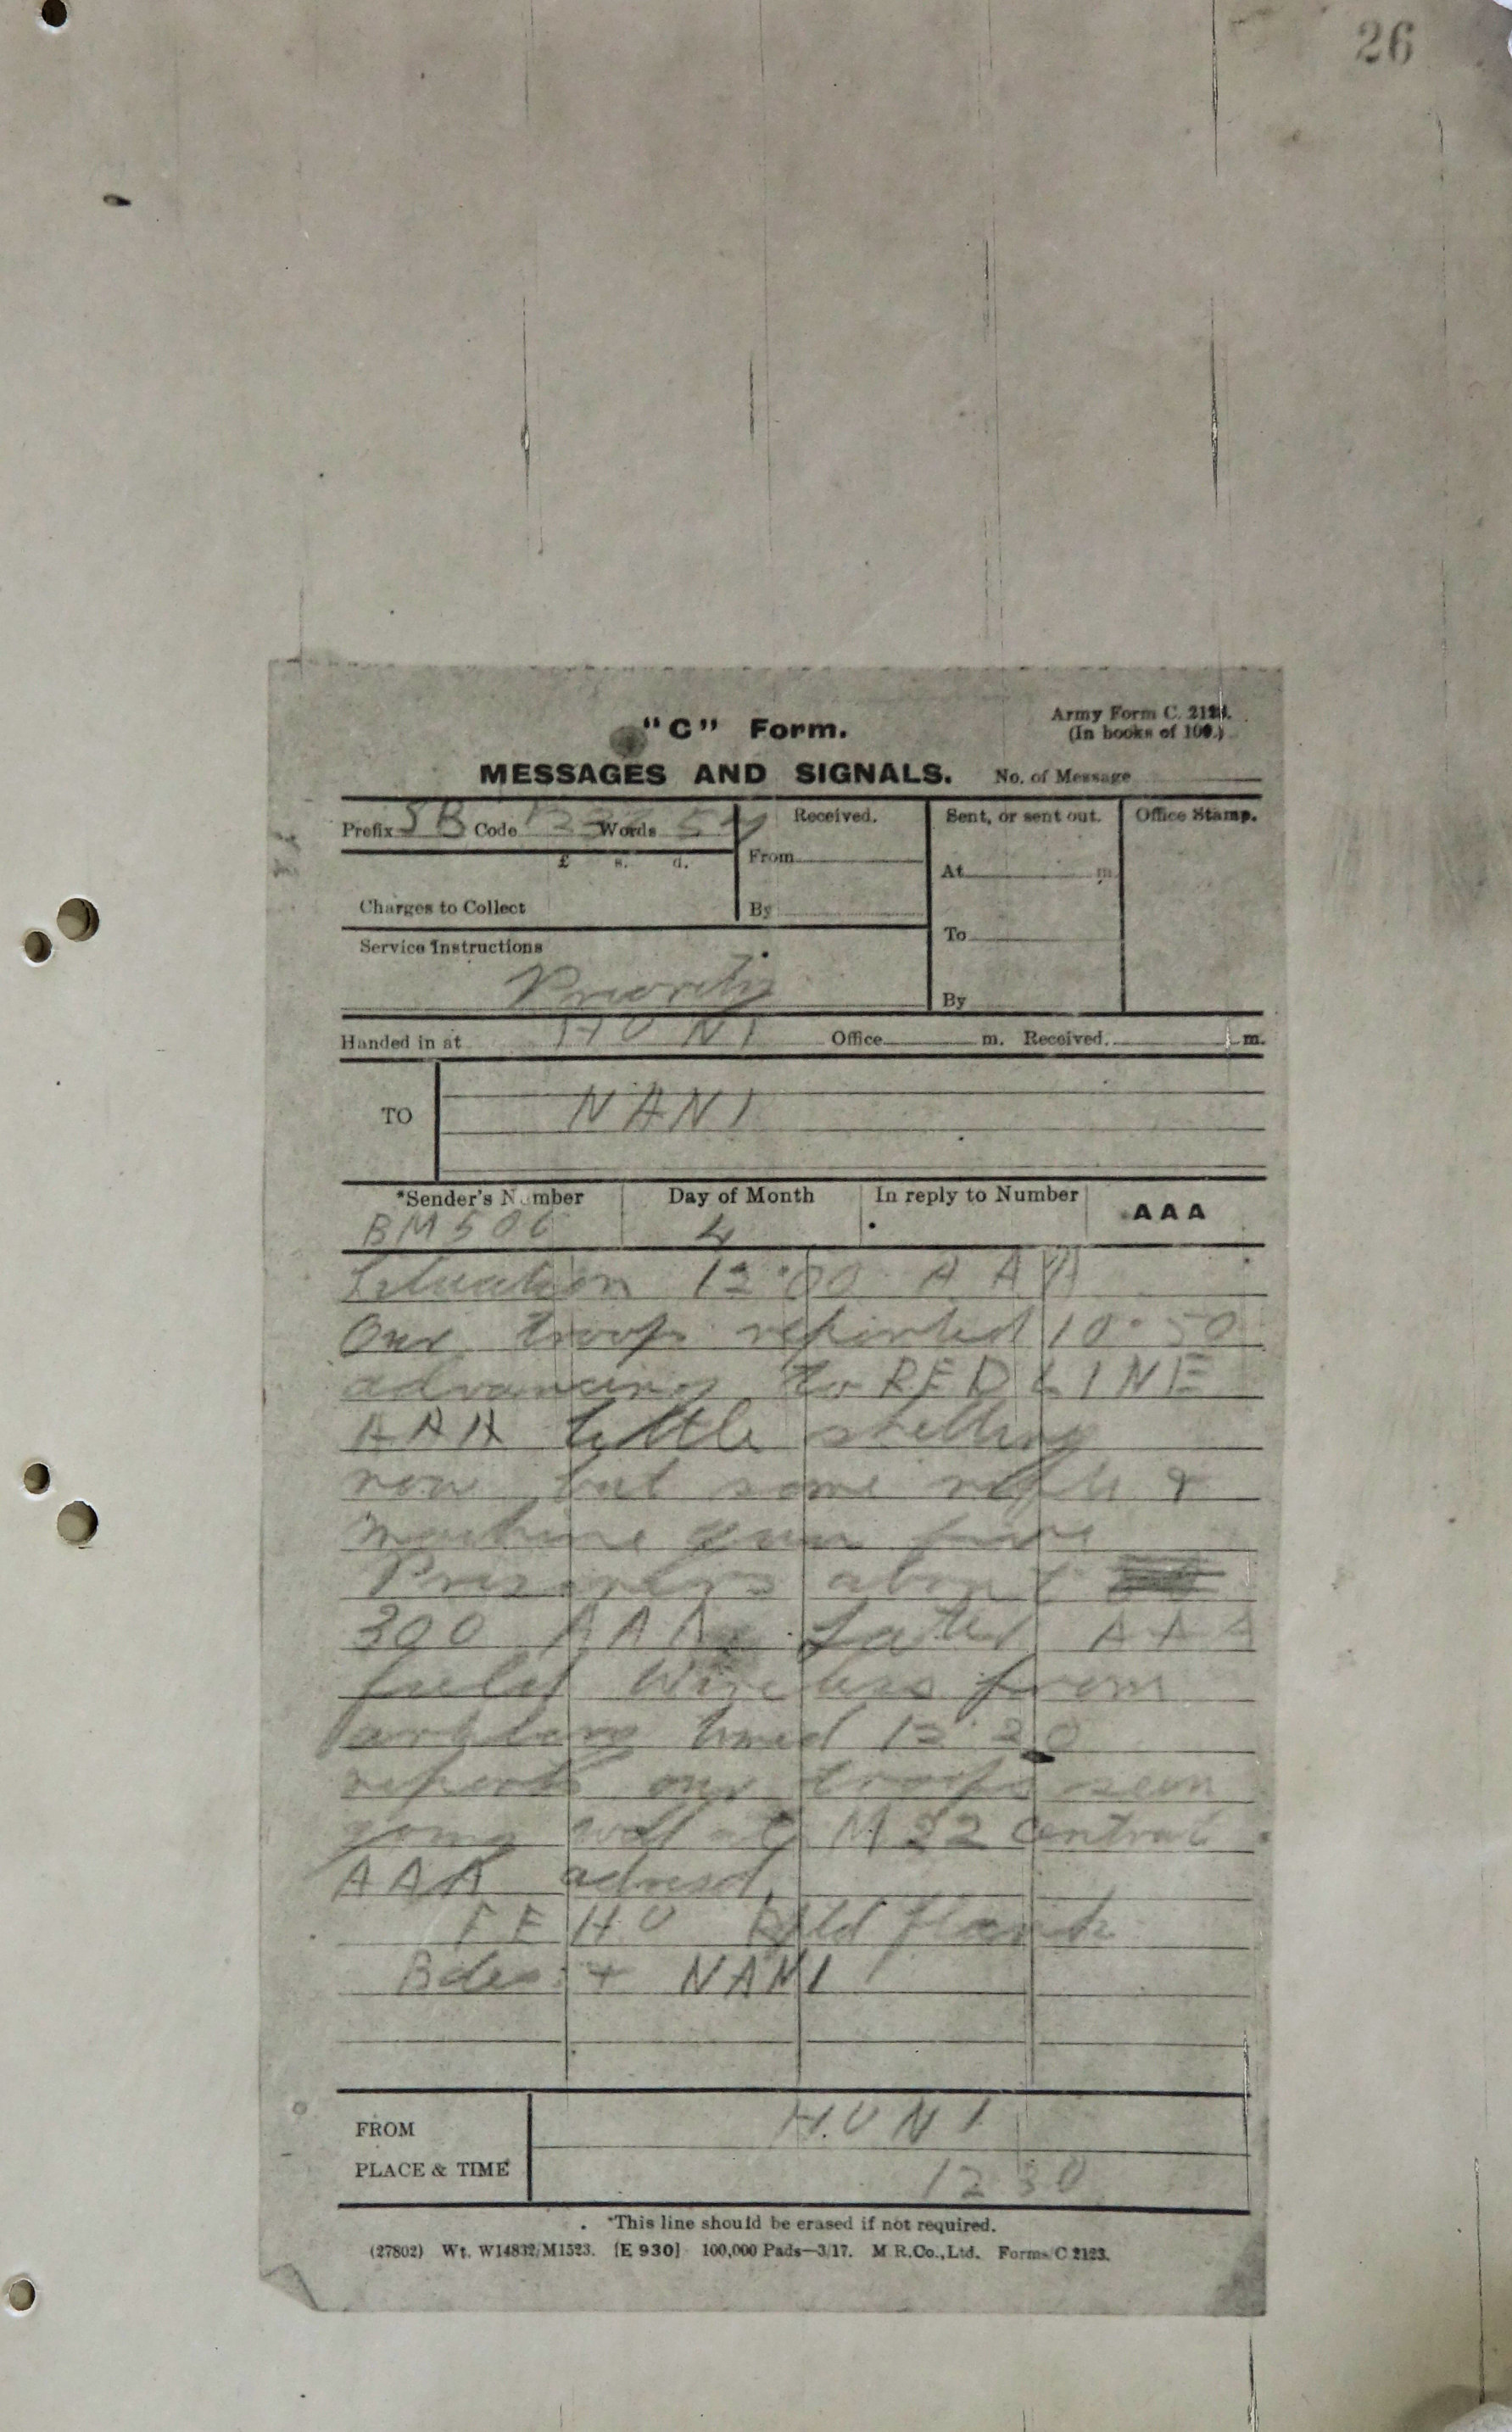 26
"C" Form.
Army Form C. 2121.
(In books of 100.)
MESSAGES AND SIGNALS.
No. of Message
Prefix SB Code Words
Received.
Sent, or sent out.
Office Stamp.
£ s. d.
From
At m.
Charges to Collect
By
To
Service Instructions
Priority
By
Handed in at HUNI Office m. Received. m.
TO NANI
*Sender's Number
Day of Month
In reply to Number
AAA
BM506 4
Situation 12.00 AAA
Our troops reported 10.50
advancing to RED LINE
AAA Little shelling
now but some rifle &
machine gun fire
Prisoners about
300 AAA Later AAA
Wireless from
timed 12.20
reports our troops seen
going well at M 22 central
AAA adresd
FEHU Fld flank
Bdes + NANI
FROM HUNI
PLACE & TIME 1230
*This line should be erased if not required.
(27802) Wt. W14832/M1523. [E 930] 100,000 Pads—3/17. M.R.Co.,Ltd. Forms/C 2123.